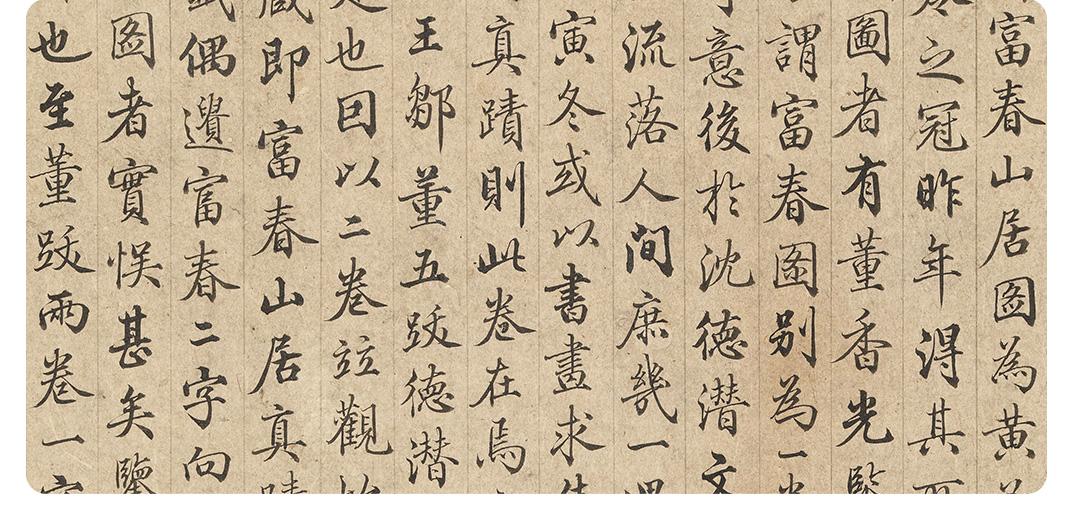 富春山居圖為黃
之冠昨年得其
圖者有董香光
謂富春圖別為一
意後於沈德潛文
流落人間庶幾一
寅冬或以書畫求
真蹟則此卷在焉
王鄒董五跋德潛
也因以二卷竝觀
即富春山居真
偶遺富春二字向
圖者實悞甚矣鑒
也至董跋兩卷一